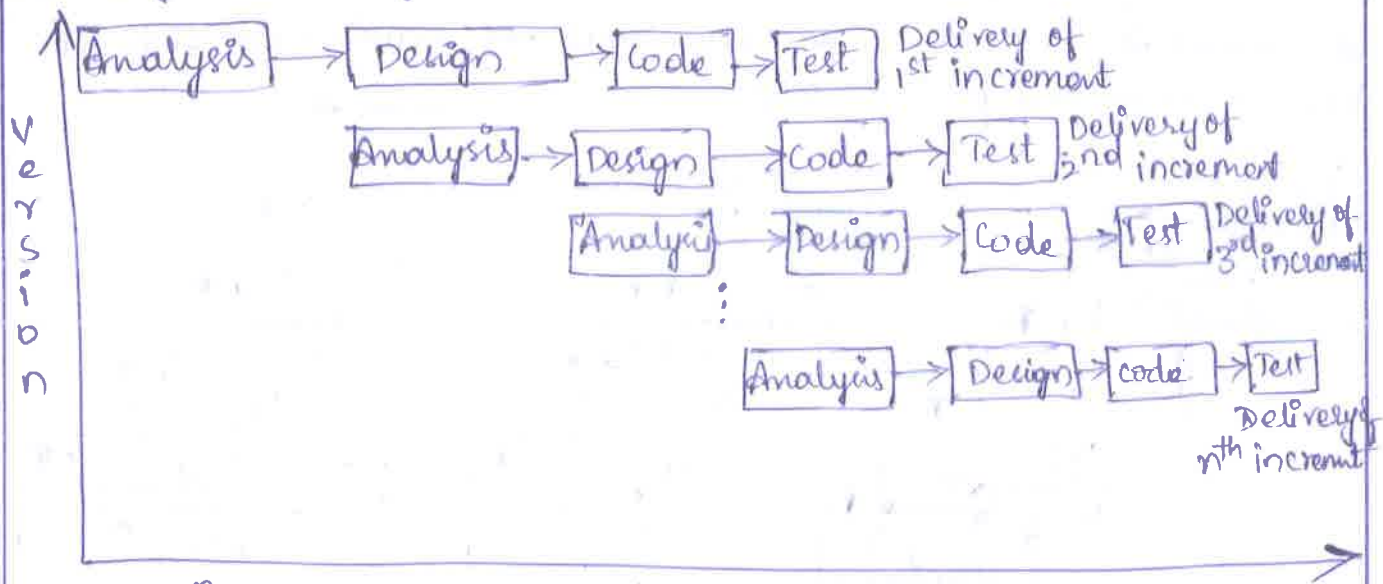 Analysis Design Code Test Delivery of
1st increment
Analysis Design Code Test Delivery of
2nd increment
Analysis Design Code Test Delivery of
3rd increment
Analysis Design code Test
Delivery of
nth incremnt
Version